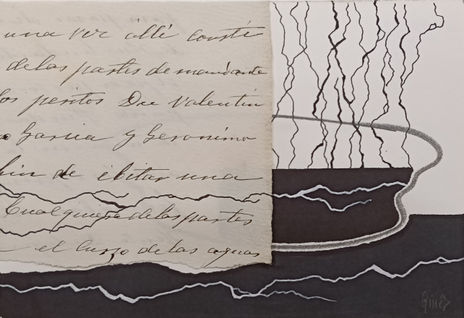 una vez allí consti
de las partes de mancomún
los peritos Don Valentin
Garcia y Geronimo
fin de evitar una
Cualquiera de las partes
el curso de las aguas